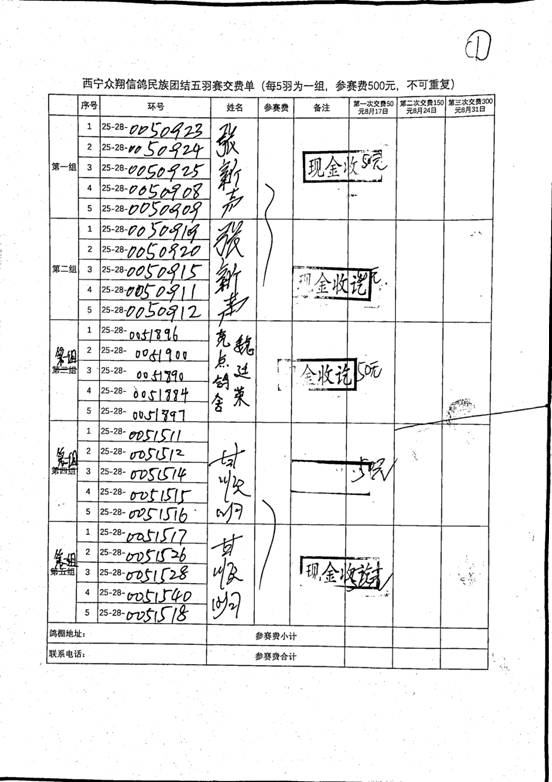 ①
西宁众翔信鸽民族团结五羽赛交费单（每5羽为一组，参赛费500元，不可重复）
序号 环号 姓名 参赛费 备注 第一次交费50元8月17日 第二次交费150元8月24日 第三次交费300元8月31日
第一组 张新嘉 现金收 50元
1 25-28-0050923
2 25-28-0050924
3 25-28-0050925
4 25-28-0050908
5 25-28-0050909
第二组 张新 现金收讫 元
1 25-28-0050919
2 25-28-0050920
3 25-28-0050915
4 25-28-0050911
5 25-28-0050912
第一组 第三组 亮点鸽舍 魏廷荣 金收讫 50元
1 25-28-0051896
2 25-28-0051900
3 25-28-0051890
4 25-28-0051884
5 25-28-0051897
第四组 甘 50元
1 25-28-0051511
2 25-28-0051512
3 25-28-0051514
4 25-28-0051515
5 25-28-0051516
第五组 甘 现金收
1 25-28-0051517
2 25-28-0051526
3 25-28-0051528
4 25-28-0051540
5 25-28-0051518
鸽棚地址： 参赛费小计
联系电话： 参赛费合计